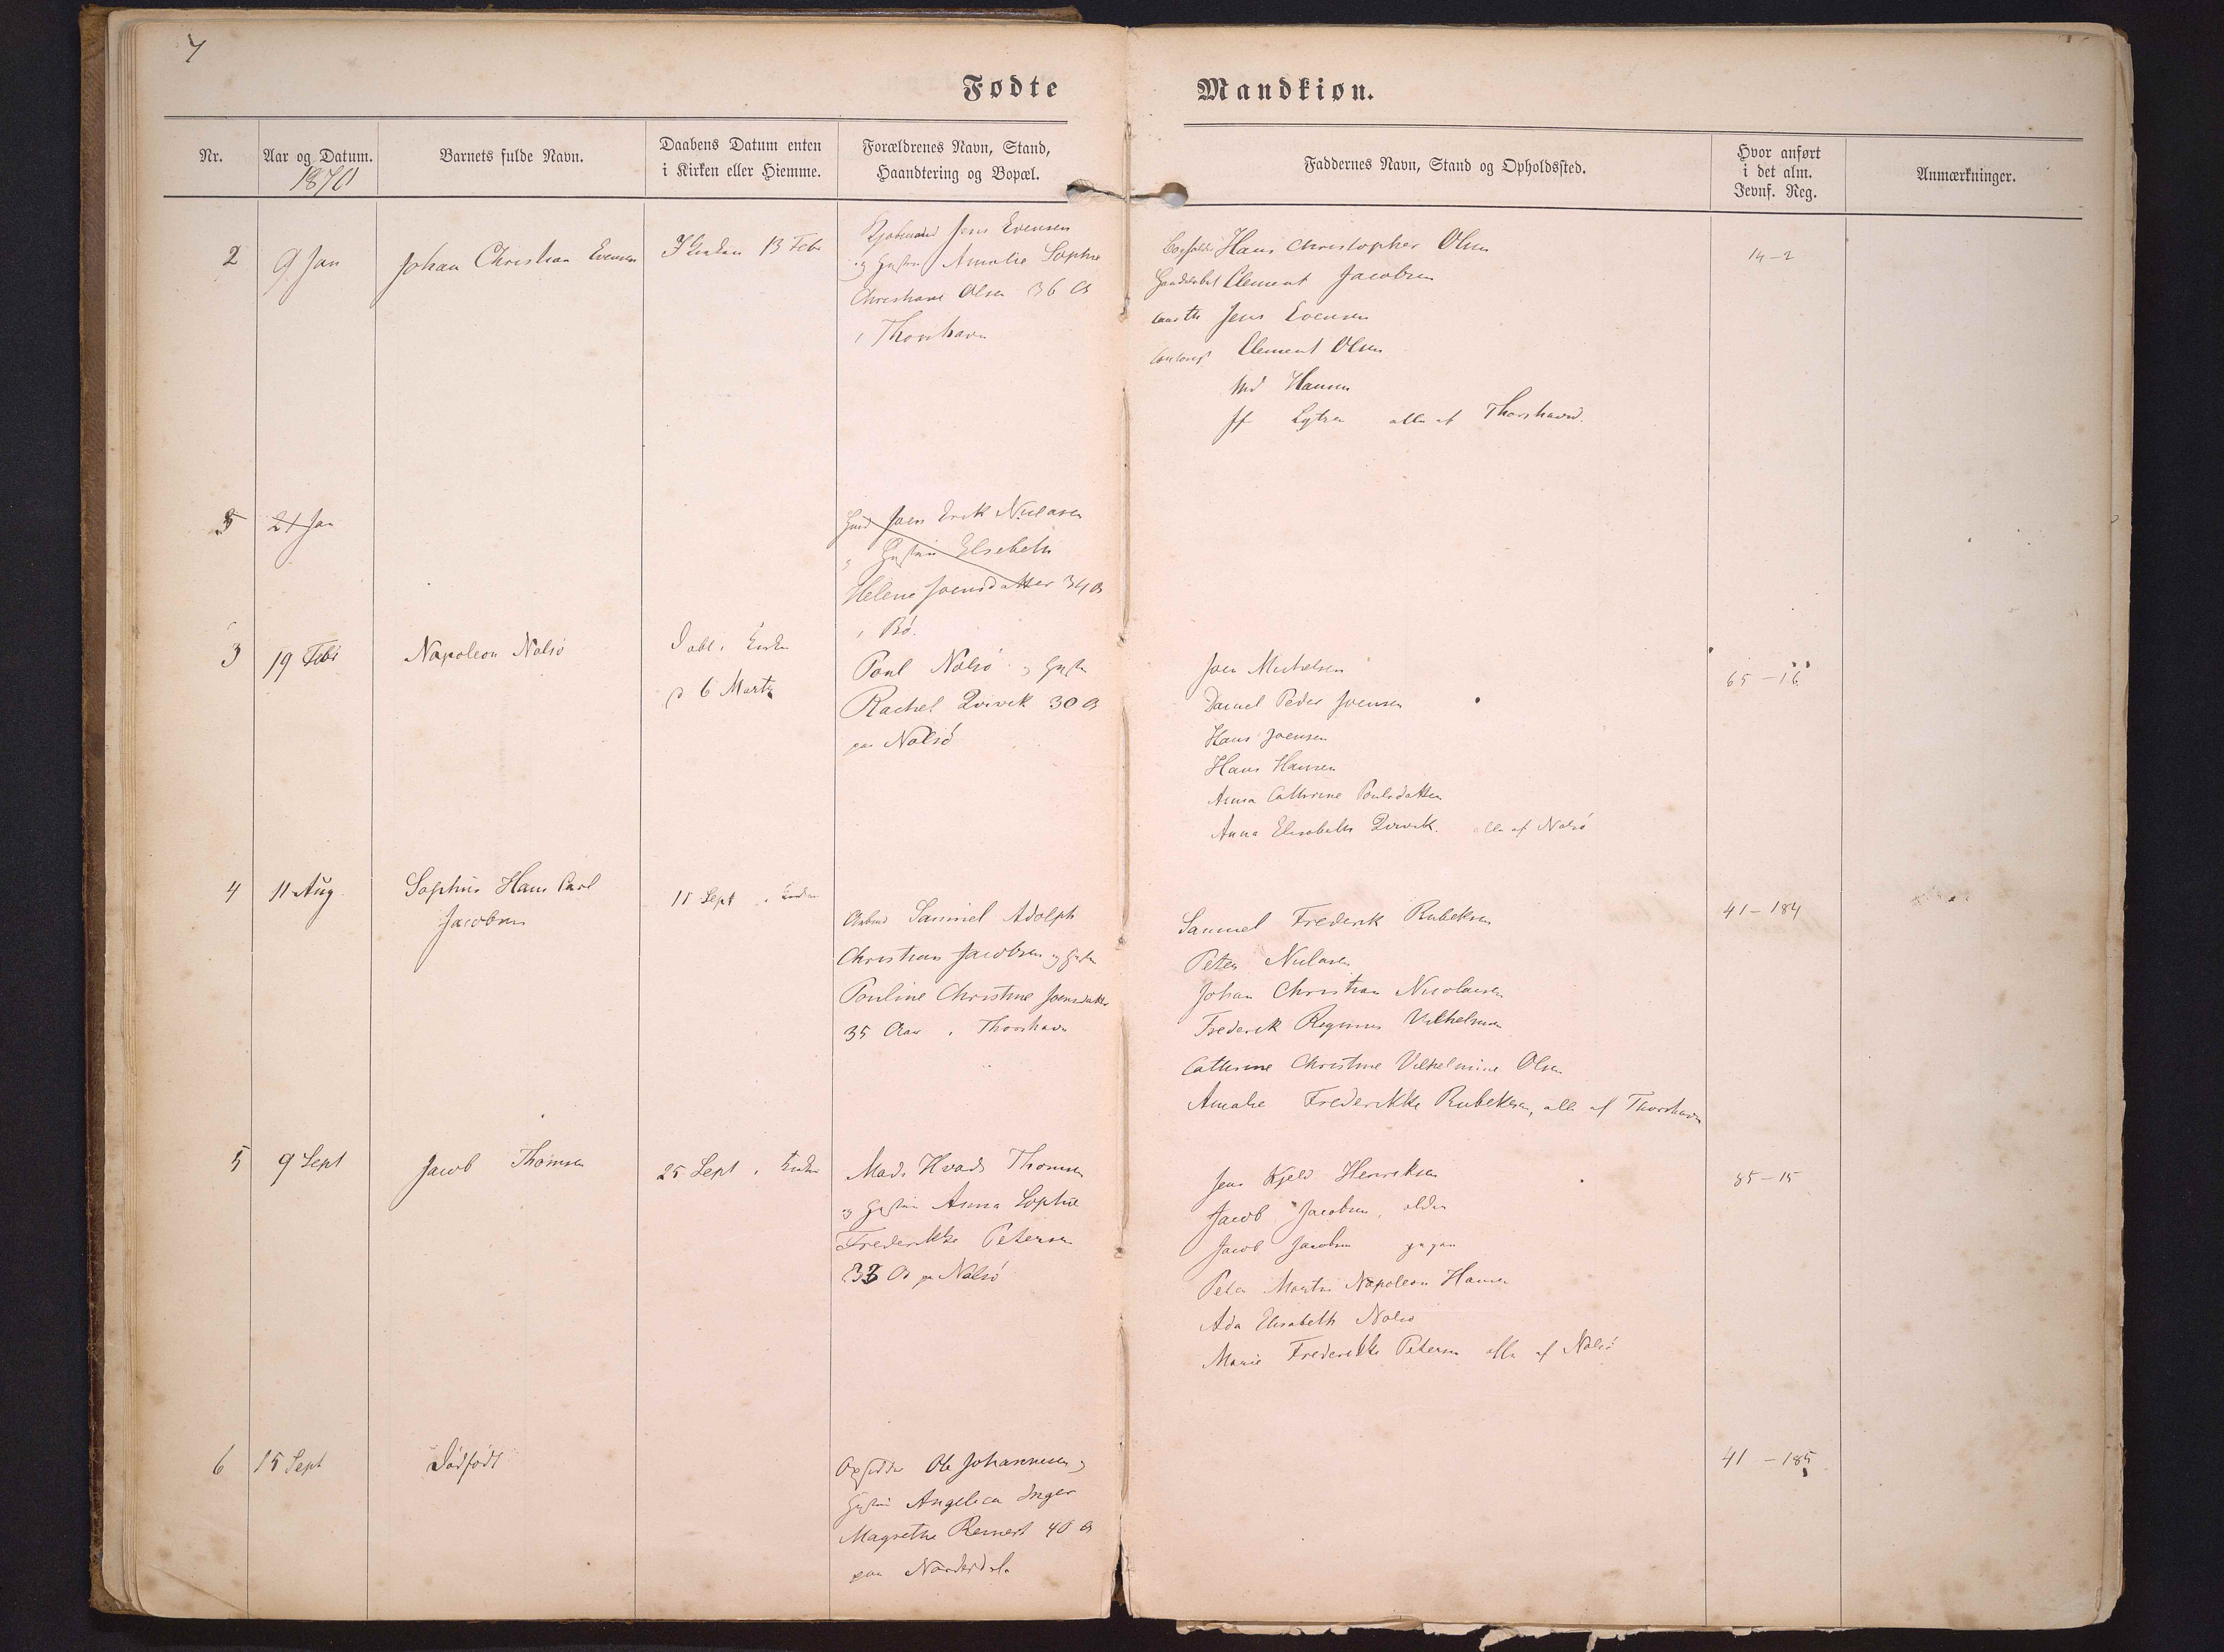 7
Fødte
Mandkiøn.
Nr.
Aar og Datum.
1870
Barnets fulde Navn.
Daabens Datum enten
i Kirken eller Hiemme.
Forældrenes Navn, Stand,
Haandtering og Bopæl.
Faddernes Navn, Stand og Opholdssted.
Hvor anført
i det alm.
Jevnf. Reg.
Anmærkninger.
2
9 Jan
Johan Christian Evensen
I Kirken 13 Febr
Jens Evensen
og Hustru Amalie Sophie
Christiane Olsen 36 A
i Thorshavn
Hans Christopher Olsen
Clement Jacobsen
Jens Evensen
Clement Olsen
Md Hansen
Jf Lytzen alle af Thorshavn.
14-2
3
21 Jan
Joen Erik Niclasen
og Hustru Elsebeth
Helene Joensdatter 34 A
i Bø.
3
19 Febr
Napoleon Nolsö
Døbt i Kirken
d 6 Marts
Poul Nolsö og Hustru
Rachel Qvivik 30 A
paa Nolsö
Joen Michelsen
Daniel Peder Joensen
Hans Joensen
Hans Hansen
Anna Cathrine Poulsdatter
Anna Elisabeth Qvivik. alle af Nolsö
65-16
4
11 Aug
Sophus Hans Carl
Jacobsen
11 Sept i Kirken
Samuel Adolph
Christian Jacobsen og Hustru
Pouline Christine Joensdatter
35 Aar i Thorshavn
Samuel Frederik Rubeksen
Peter Niclasen
Johan Christian Nicolaisen
Frederik Reginus Vilhelmsen
Cathrine Christine Vilhelmine Olsen
Amalie Frederikke Rubeksen, alle af Thorshavn
41-184
5
9 Sept
Jacob Thomsen
25 Sept i Kirken
Mads Hvads Thomsen
og Hustru Anna Sophie
Frederikke Petersen
33 A paa Nolsö
Jens Kjeld Henriksen
Jacob Jacobsen, ældre
Jacob Jacobsen yngre
Peter Martin Napoleon Hansen
Ada Elisabeth Nolsö
Marie Frederikke Petersen alle af Nolsö
85-15
6
15 Sept
Dödfödt
Opsidder Ole Johannesen og
Hustru Angelica Inger
Magrethe Reinert 40 A
paa Norderdal.
41-185